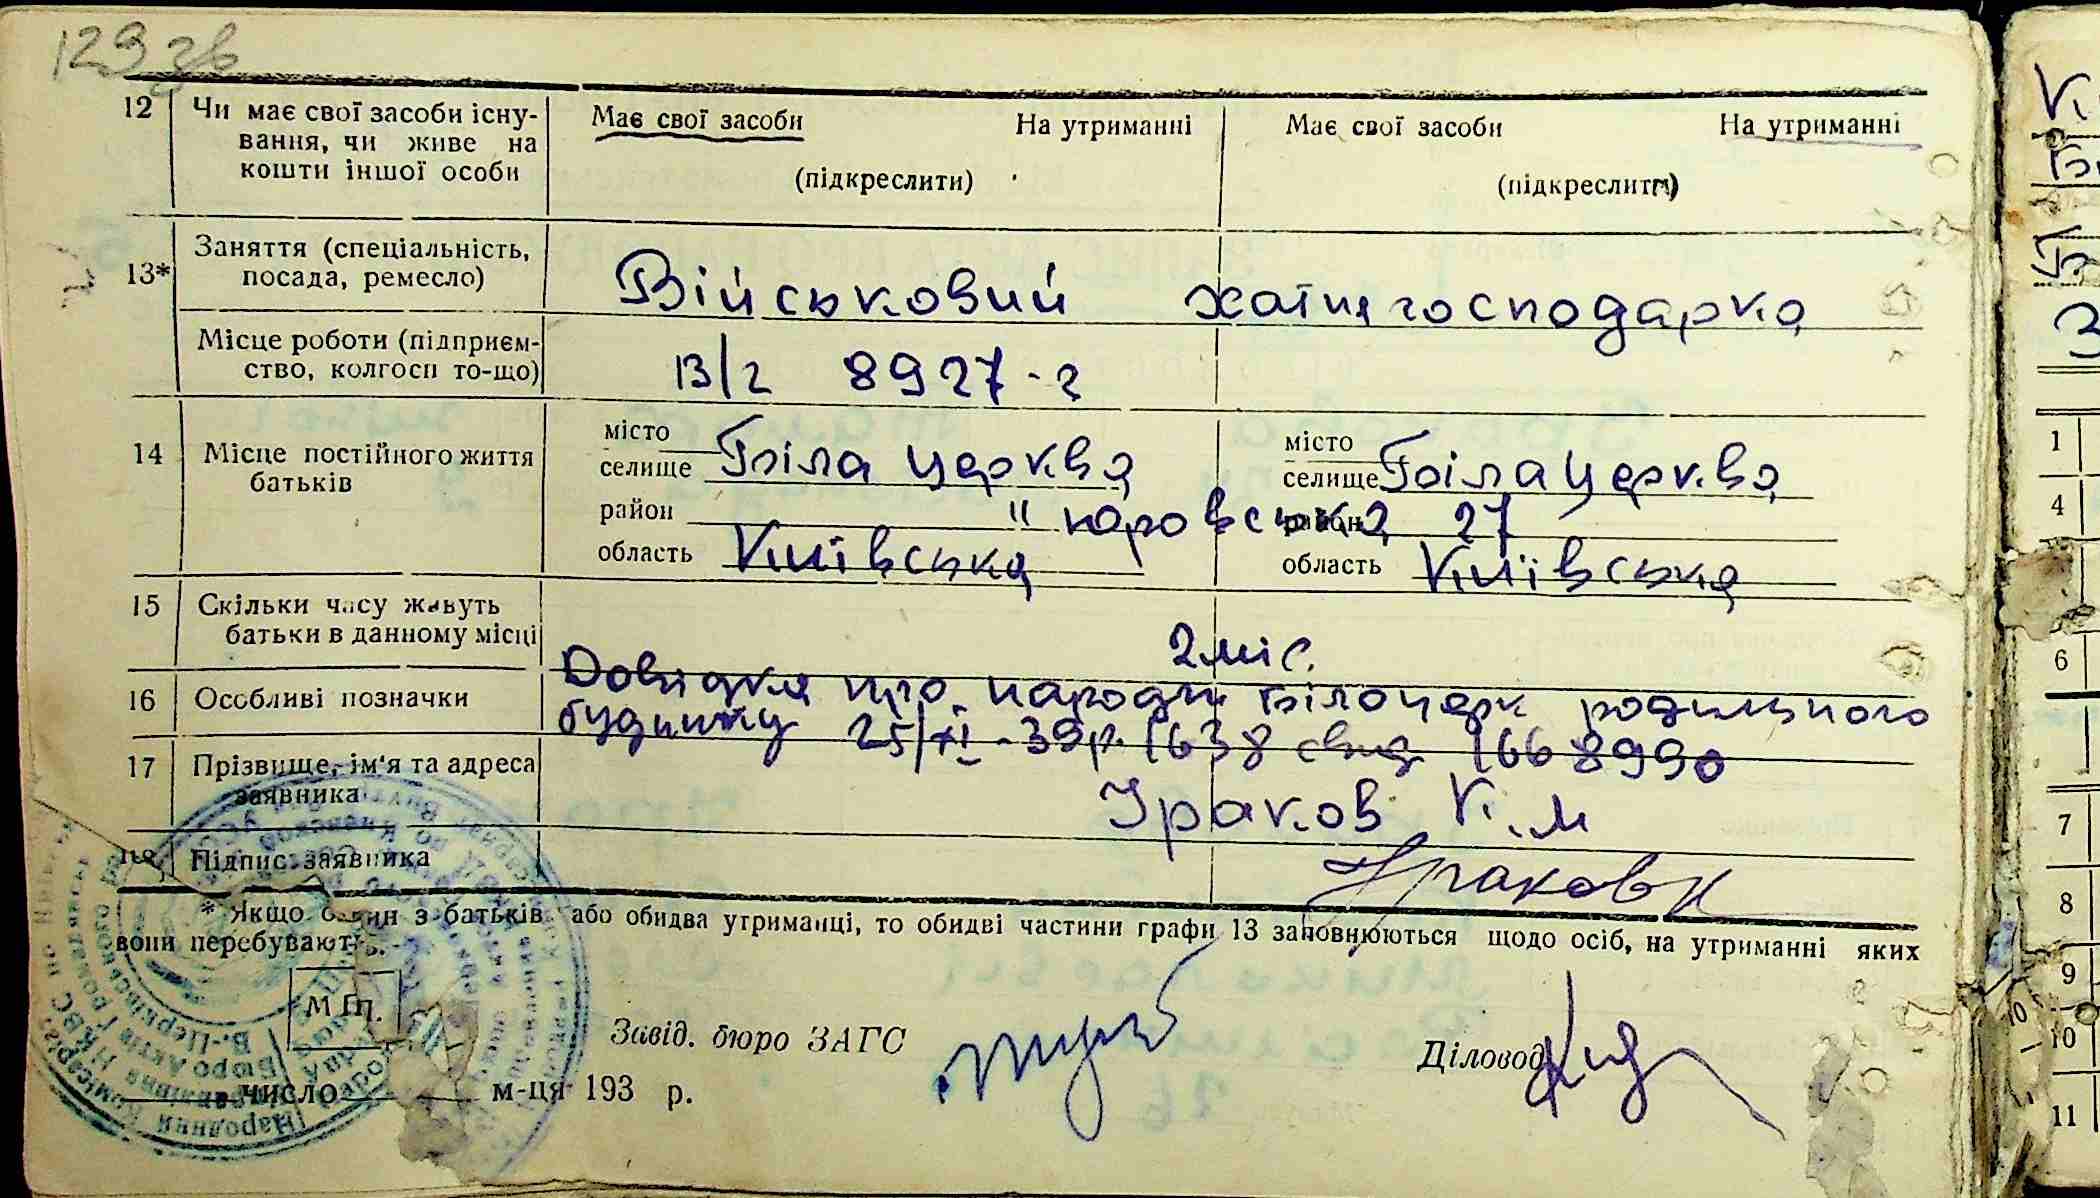 129 зв
12 Чи має свої засоби існу- Має свої засоби На утриманні Має свої засоби На утриманні
вання, чи живе на
кошти іншої особи (підкреслити) (підкреслити)
13* Заняття (спеціальність,
посада, ремесло) Військовий хатня господарка
Місце роботи (підприєм-
ство, колгосп то-що) в/г 8927-г
14 Місце постійного життя
батьків
місто
селище Біла Церква
район
область Київська
місто
селище Біла Церква
район 27
область Київська
15 Скільки часу живуть
батьки в данному місці 2 міс.
16 Особливі позначки Довідка про народж Білоцерк родильного
будинку 25/XI-39р. 1638 свид 1668990
17 Прізвище, ім'я та адреса
заявника Ураков К. М
18 Підпис заявника Ураков К
* Якщо один з батьків або обидва утриманці, то обидві частини графи 13 заповнюються щодо осіб, на утриманні яких
вони перебувають.
М П.
Завід. бюро ЗАГС Діловод
число м-ця 193 р.
1
4
6
7
8
9
10
11